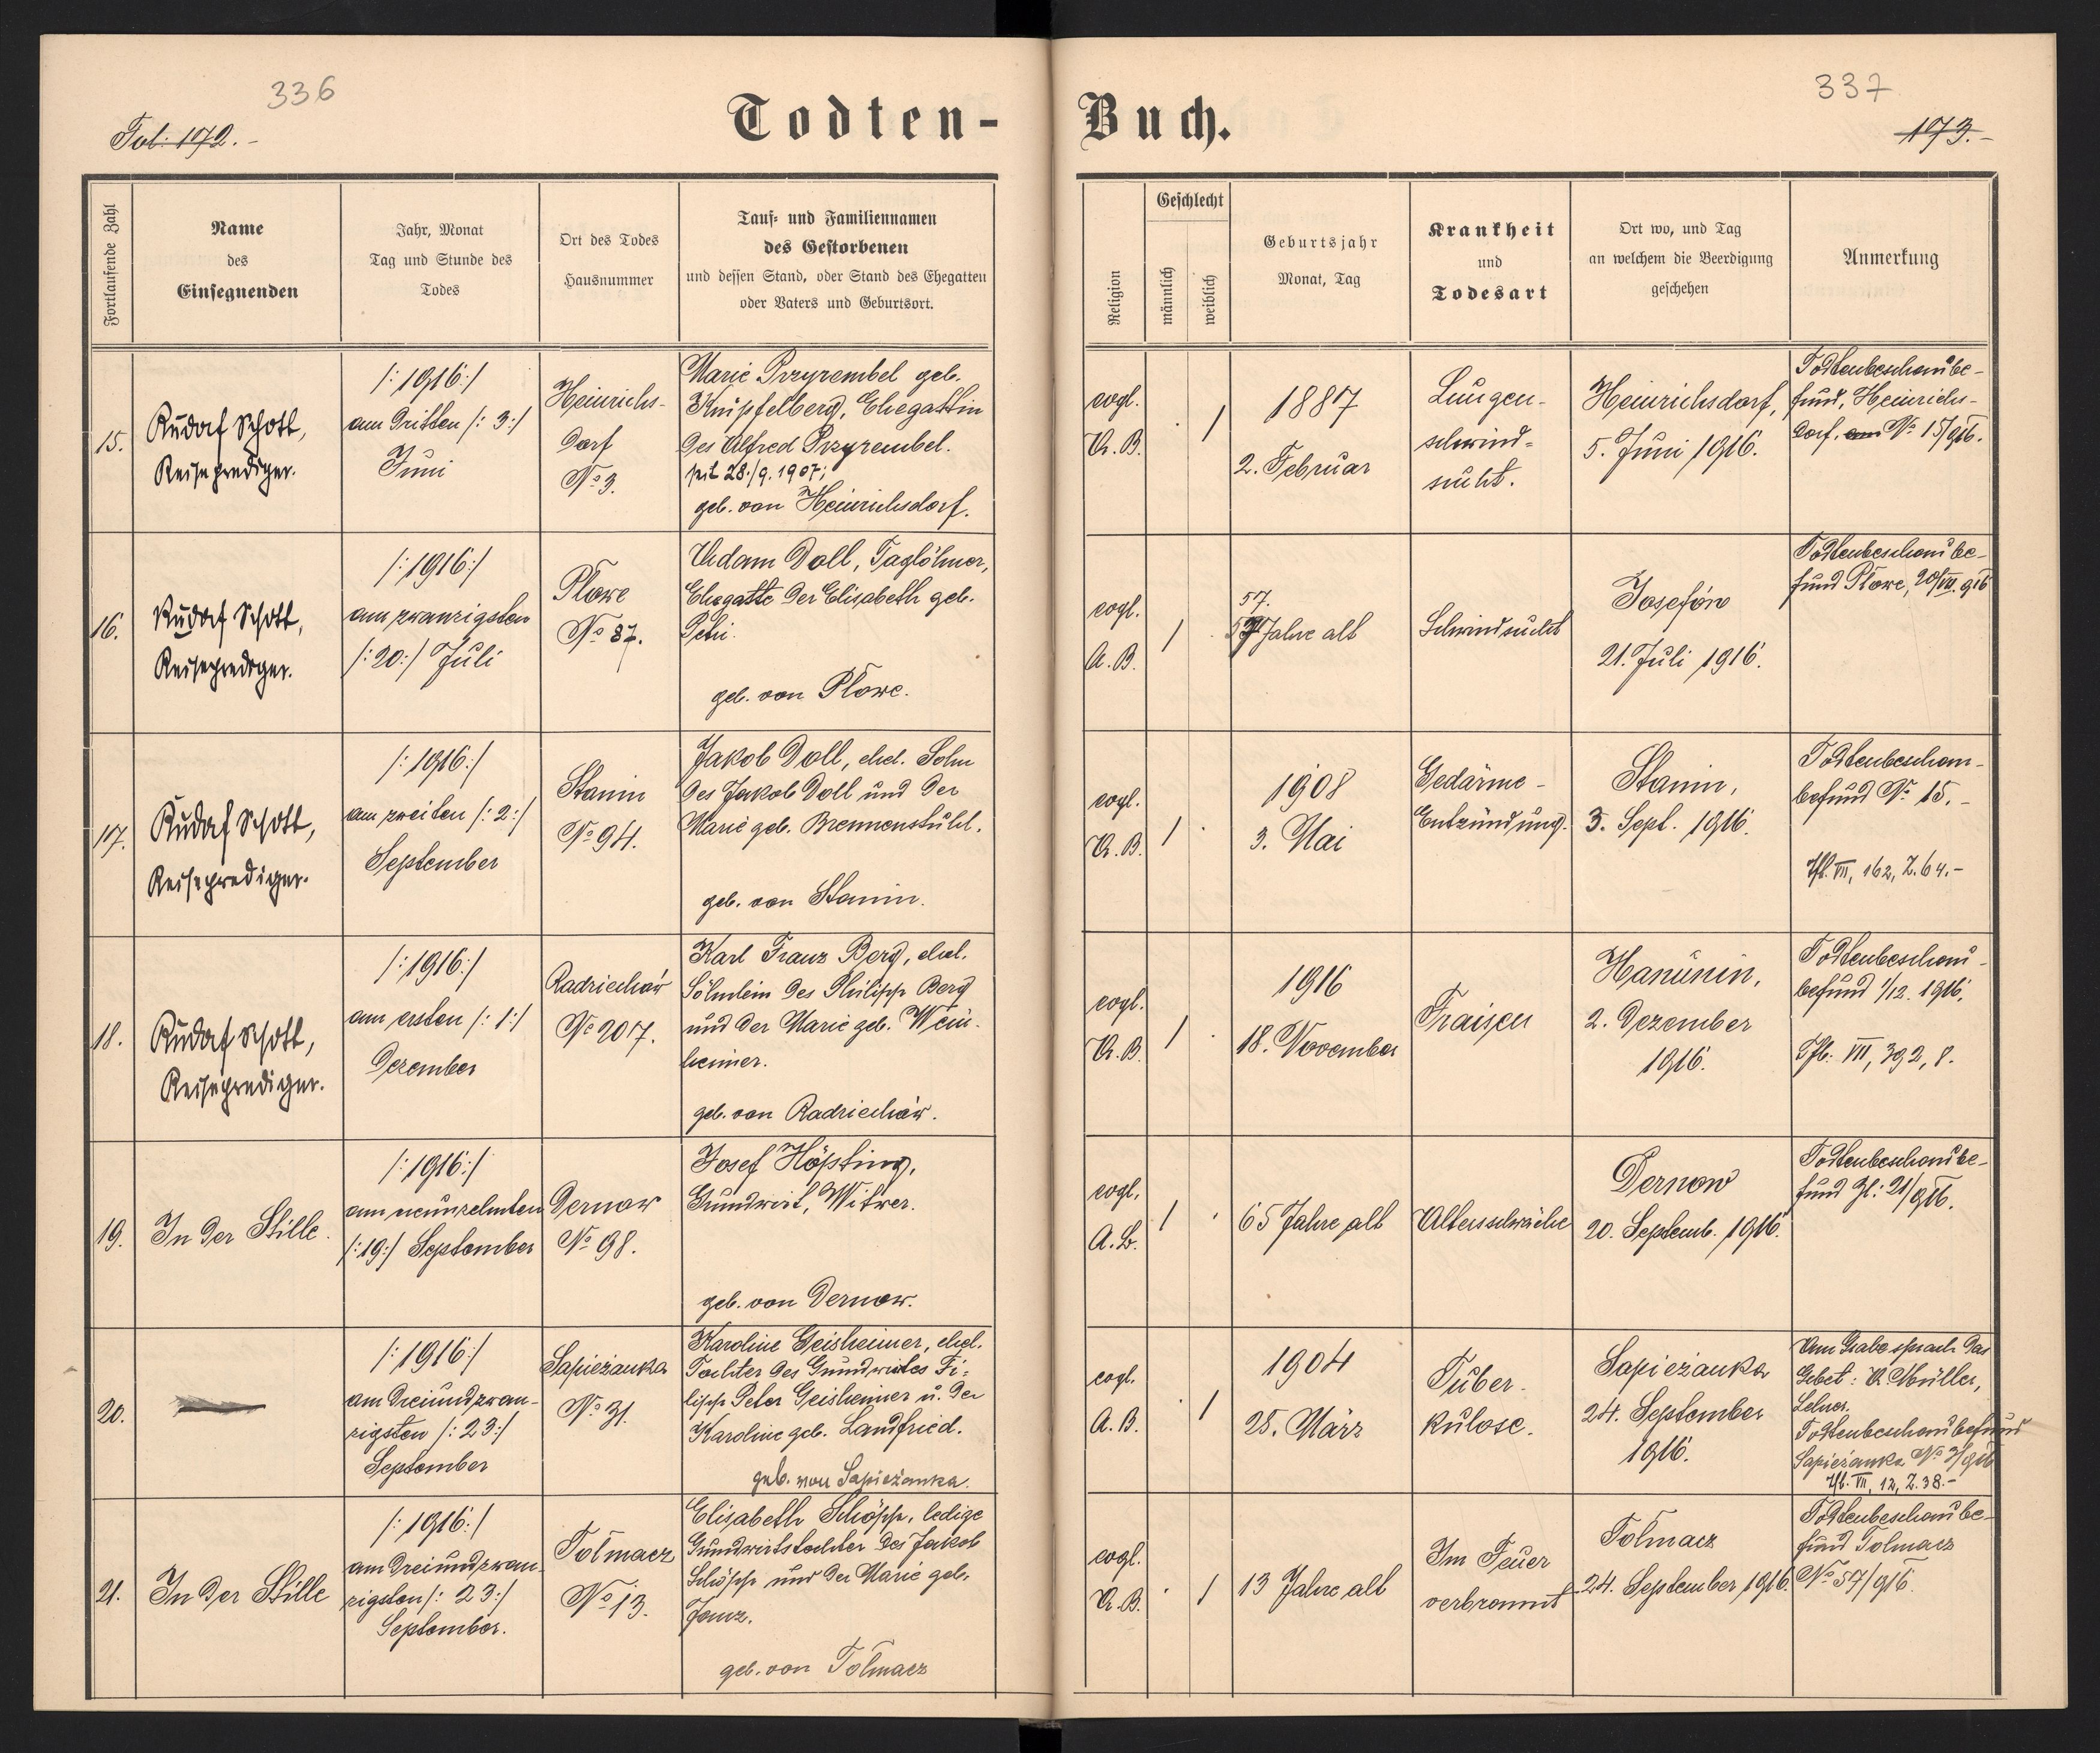 336
Fol: 172.-
Todten-
Fortlaufende Zahl
Name
des
Einsegnenden
Jahr, Monat
Tag und Stunde des
Todes
Ort des Todes
Hausnummer
Tauf- und Familiennamen
des Gestorbenen
und dessen Stand, oder Stand des Ehegatten
oder Vaters und Geburtsort.
15.
Rudolf Schott,
Reiseprediger.
/:1916:/
am dritten /:3:/
Juni
Heinrichs-
dorf
No 3.
Marie Przyrembel geb.
Knüpfelberg, Ehegattin
des Alfred Przyrembel.
seit 28./9. 1907;
geb. von Heinrichsdorf.
16.
Rudolf Schott,
Reiseprediger.
/:1916:/
am zwanzigsten
/:20:/ Juli
Płowe
No 87.
Adam Doll, Taglöhner,
Ehegatte der Elisabeth geb.
Petri.
geb. von Płowe.
17.
Rudolf Schott,
Reiseprediger.
/:1916:/
am zweiten /:2:/
September
Stanin
No 94.
Jakob Doll, ehel. Sohn
des Jakob Doll und der
Marie geb. Brennenstuhl.
geb. von Stanin.
18.
Rudolf Schott,
Reiseprediger.
/:1916:/
am ersten /:1:/
Dezember
Radziechów
No 207.
Karl Franz Berg, ehel.
Söhnlein des Philipp Berg
und der Marie geb. Wein-
heimer.
geb. von Radziechów.
19.
In der Stille.
/:1916:/
am neunzehnten
/:19:/ September
Dernow
No 98.
Josef Höpfting,
Grundwirt, Witwer.
geb. von Dernow.
20.
/:1916:/
am dreiundzwan-
zigsten /:23:/
September
Sapieżanka
No 31.
Karoline Geisheimer, ehel.
Tochter des Grundwirtes Fi-
lipp Peter Geisheimer u. der
Karoline geb. Landfried.
geb. von Sapieżanka.
21.
In der Stille
/:1916:/
am dreiundzwan-
zigsten /:23:/
September.
Tołmacz
No 13.
Elisabeth Schöpp, ledige
Grundwirtstochter des Jakob
Schöpp und der Marie geb.
Janz.
geb. von Tołmacz
337
173.-
Buch.
Religion
Geschlecht
männlich
weiblich
Geburtsjahr
Monat, Tag
Krankheit
und
Todesart
Ort wo, und Tag
an welchem die Beerdigung
geschehen
Anmerkung
evgl.
A. B.
1887
2. Februar
Lungen-
schwind-
sucht.
Heinrichsdorf,
5. Juni 1916.
Todtenbeschaube-
fund, Heinrichs-
dorf, No 15/916.
evgl.
A. B.
57.
Jahre alt
Schwindsucht
Josefów
21. Juli 1916.
Todtenbeschaube-
fund Płowe, 20/VII. 916
evgl.
A. B.
1908
3. Mai
Gedärme-
Entzündung.
Stanin,
3. Sept. 1916.
Todtenbeschau-
befund No 15.-
Tfb. VII, 162, Z. 64.-
evgl.
A. B.
1916
18. November
Fraisen
Hanunin,
2. Dezember
1916.
Todtenbeschau-
befund 1/12. 1916,
Tfb: VII, 392, 8.
evgl.
A. B.
65 Jahre alt
Altersschwäche
Dernow
20. Septemb. 1916.
Todtenbeschaube-
fund Zl: 21/916.
evgl.
A. B.
1904
25. März
Tuber-
kulose.
Sapieżanka
24. September
1916.
Am Grabe sprach das
Gebet: A. Müller,
Lehrer.
Todtenbeschaubefund
Sapieżanka No 3/916
Tfb. VII, 12, Z. 38.-
evgl.
A. B.
13 Jahre alt
Im Feuer
verbrannt
Tołmacz
24. September 1916.
Todtenbeschaube-
fund Tołmacz
No 57/916.